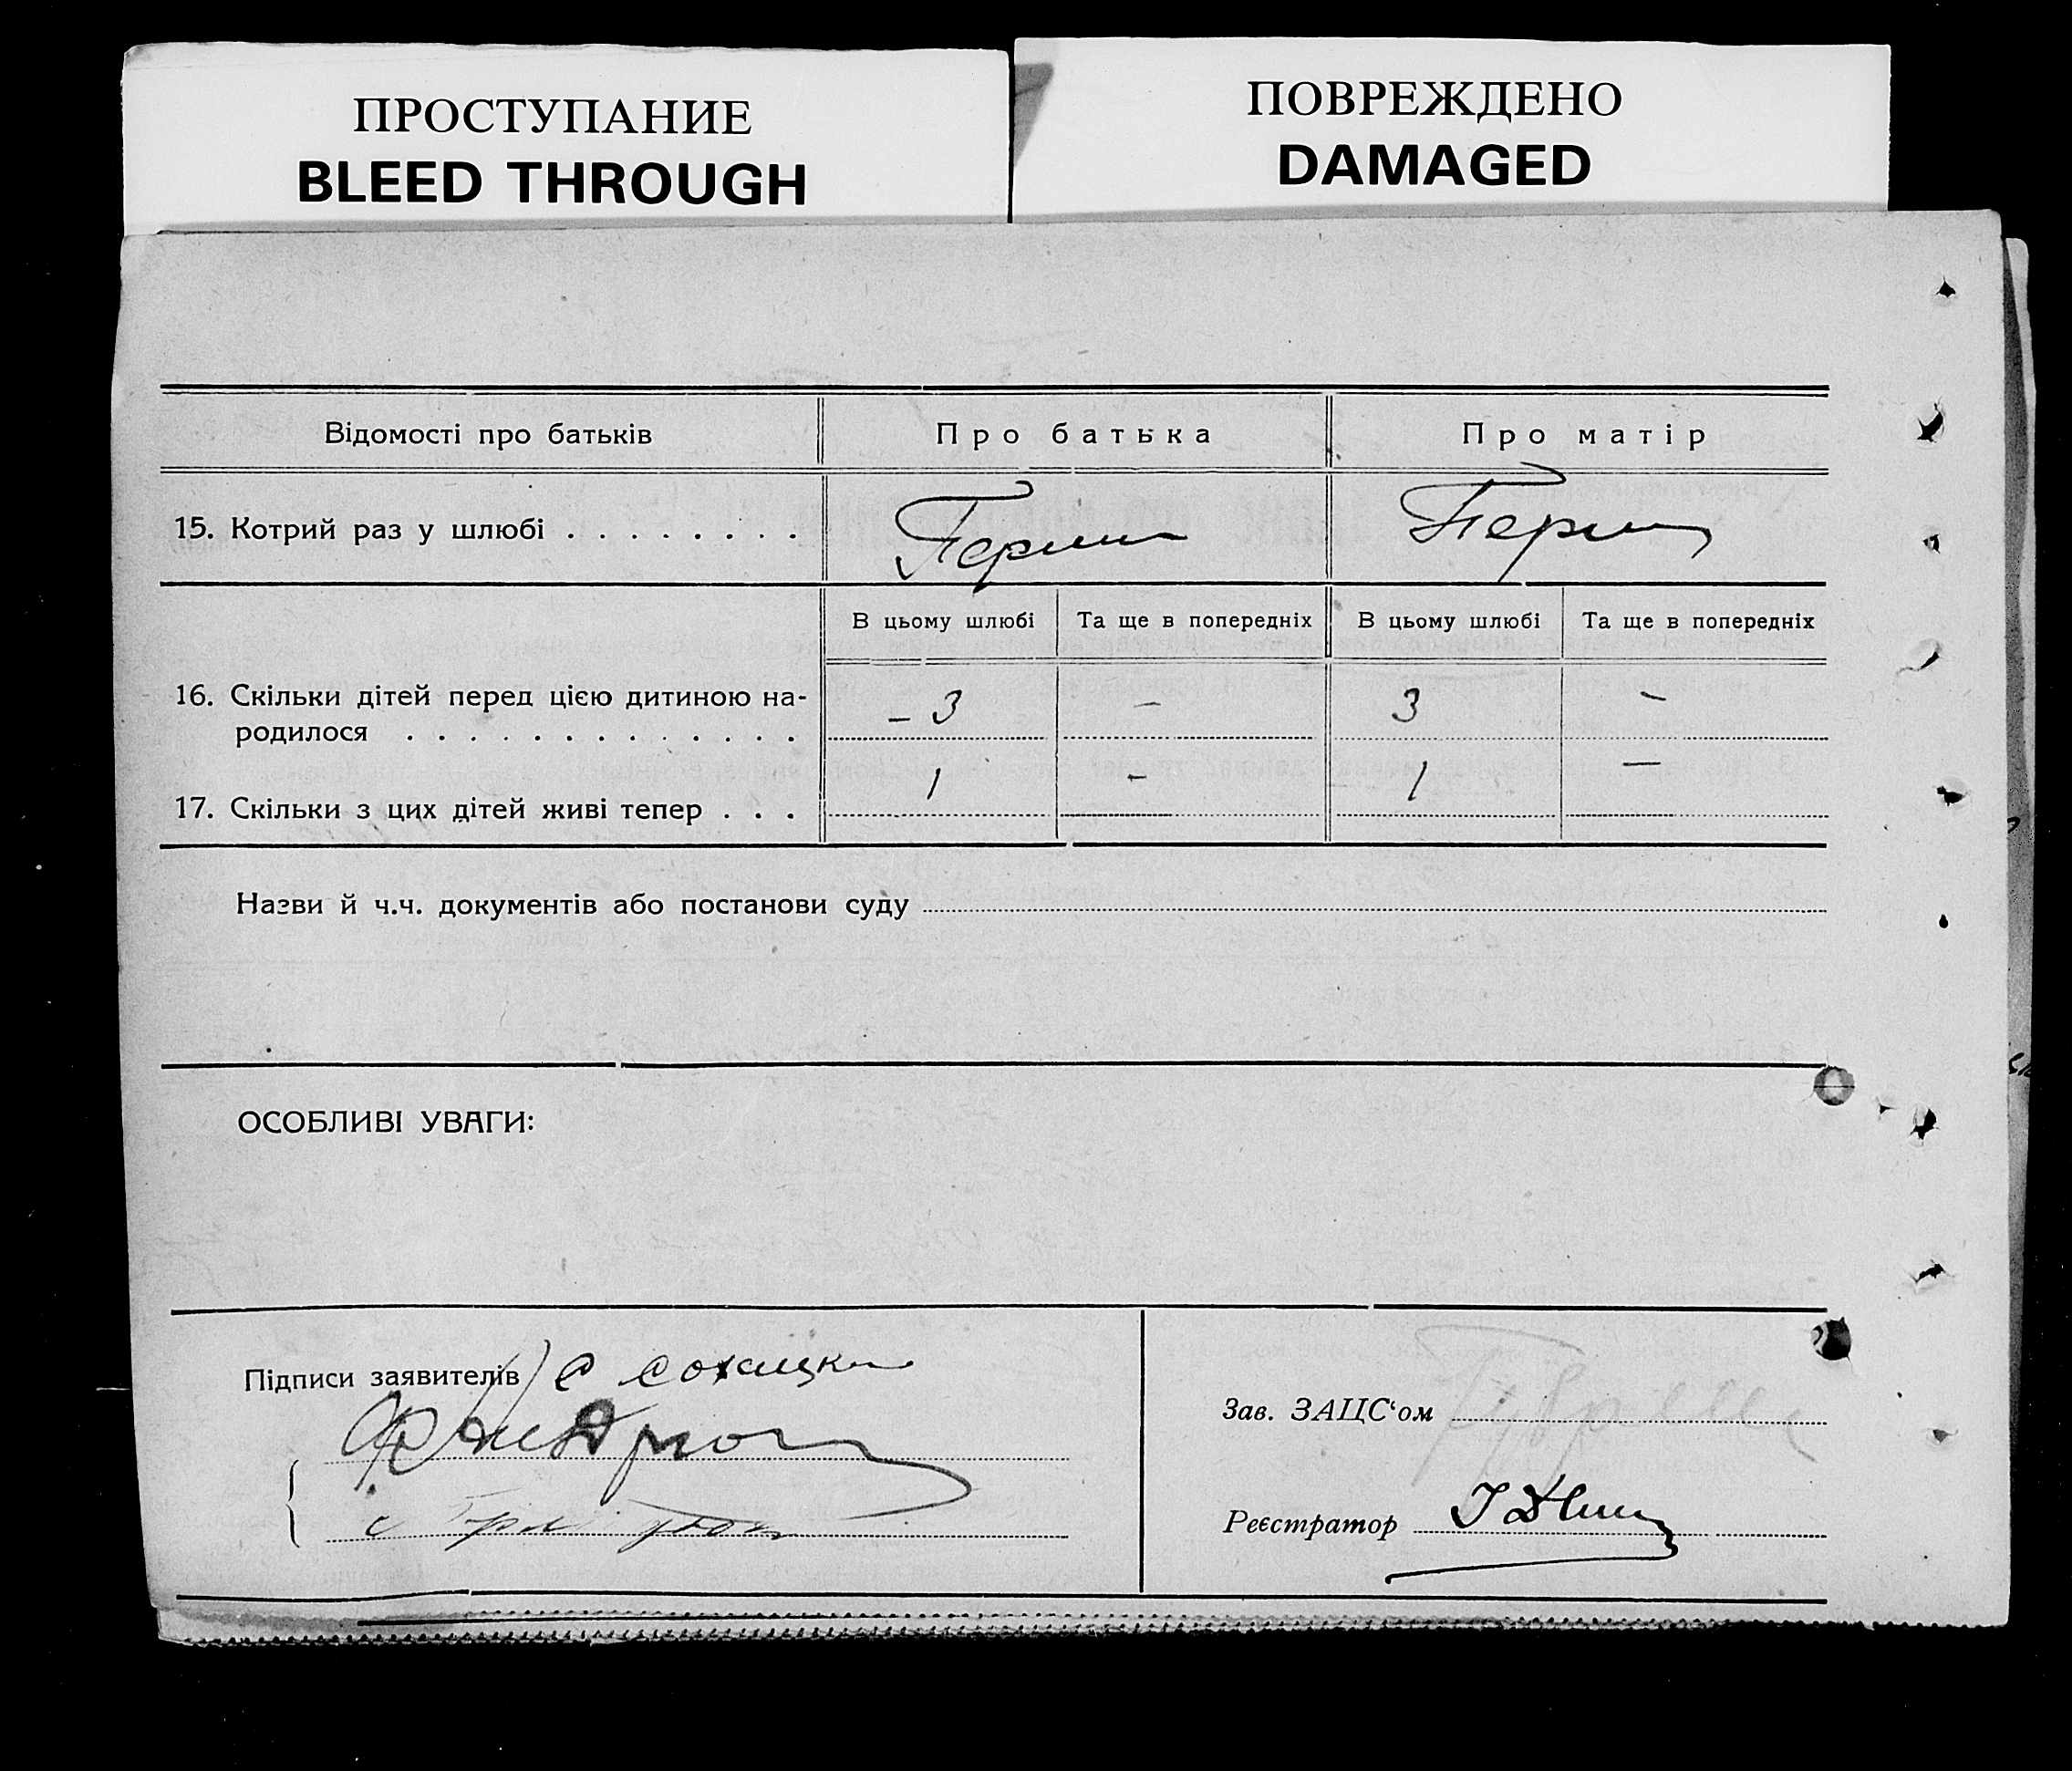 ПРОСТУПАНИЕ
BLEED THROUGH
ПОВРЕЖДЕНО
DAMAGED
Відомості про батьків Про батька Про матір
15. Котрий раз у шлюбі . . . . . . . .
В цьому шлюбі Та ще в попередніх В цьому шлюбі Та ще в попередніх
16. Скільки дітей перед цією дитиною на-
родилося . . . . . . . . . . . . . – 3 – 3 –
17. Скільки з цих дітей живі тепер . . . 1 – 1 –
Назви й ч.ч. документів або постанови суду
ОСОБЛИВІ УВАГИ:
Підписи заявителів
Зав. ЗАЦС‘ом
Реєстратор